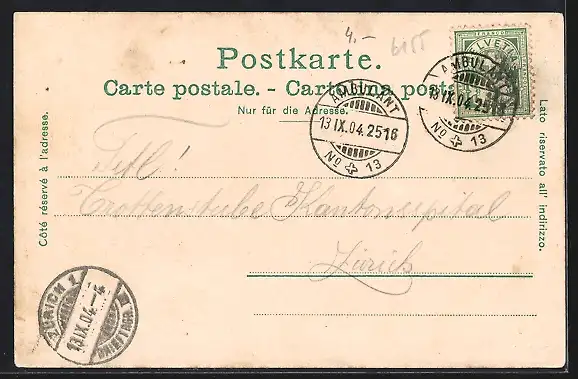 4.-
6155
FRANCO
HELVETIA
Postkarte.
Carte postale. - Cartolina postale.
Nur für die Adresse.
AMBULANT
13 IX.04.2516
No 13
AMBULANT
13 IX.04.2516
No 13
Côté réservé à l'adresse.
Lato riservato all' indirizzo.
Titl!
Trottenstube Kantonsspital
Zürich
ZÜRICH 1
13.IX.04.-4
BRIEFTRÄGER